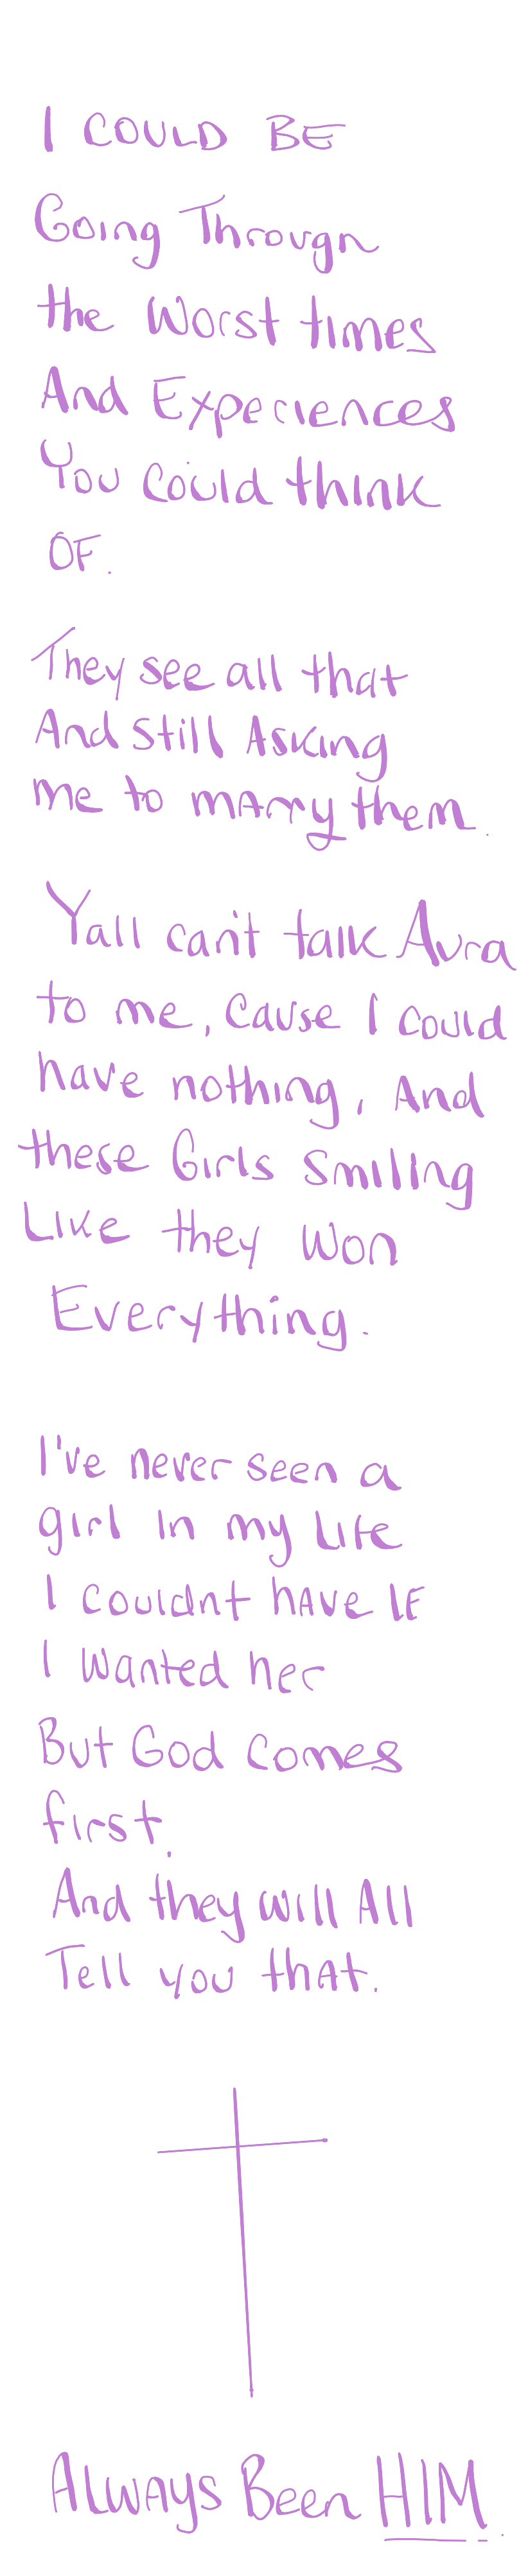 I COULD BE
Going Through
the Worst times
And Experiences
You Could think
OF.
They see all that
And Still Asking
me to marry them.
Yall can't talk Aura
to me, Cause I could
have nothing, And
these Girls Smiling
Like they Won
Everything.
I've never seen a
girl In my Life
I couldnt have IF
I wanted her
But God comes
first.
And they will All
Tell you that.
Always Been HIM.